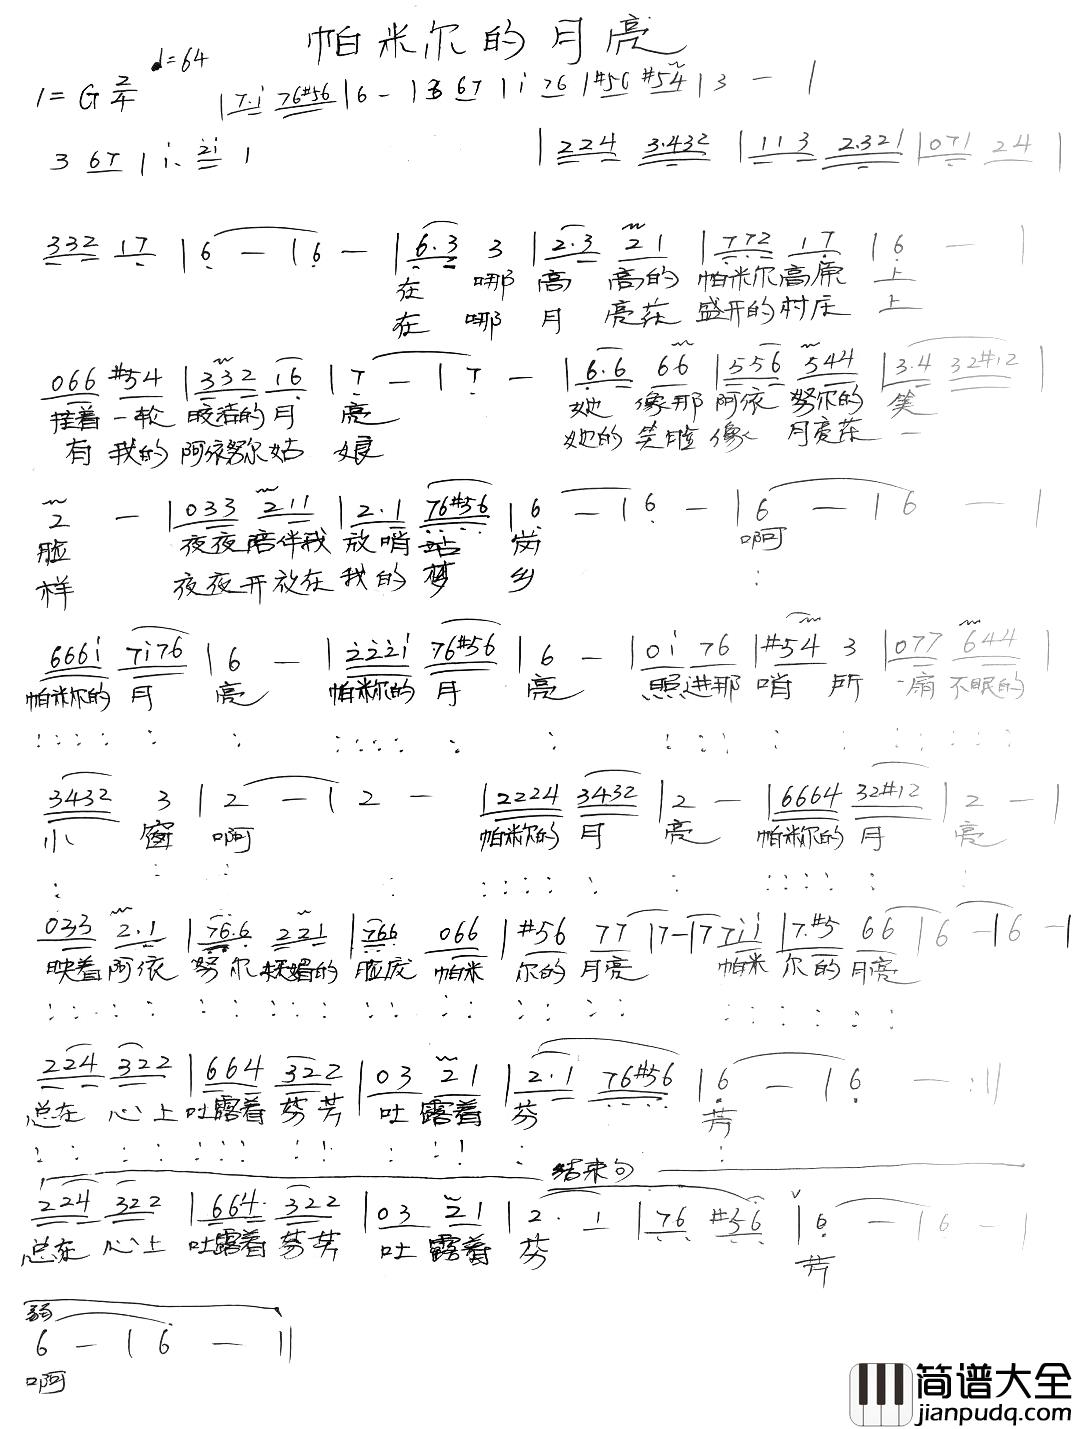 帕米尔的月亮
♩=64
1=G 2/4 | 7.i 76#56 | 6 - | 3 67 | i 76 | #56 #54 | 3 - |
3 67 | i. 2i 1 | 224 3.432 | 113 2.321 | 071 24 |
332 17 | 6 - | 6 - | 6.3 3 | 2.3 21 | 772 17 | 6 - |
在 哪 高 高的 帕米尔高原 上
在 哪 月 亮花 盛开的村庄 上
066 #54 | 332 16 | 7 - | 7 - | 6.6 66 | 556 544 | 3.4 32#12 |
挂着 一轮 皎洁的 月 亮 她 像那 阿依 努尔的 笑
有 我的 阿依努尔 姑 娘 她的 笑脸 像 月亮花 一
2 - | 033 211 | 2.1 76#56 | 6 - | 6 - | 6 - | 6 - |
脸 夜夜陪伴我 放哨 站 岗 啊
样 夜夜开放在 我的 梦 乡 :
666i 7i76 | 6 - | 222i 76#56 | 6 - | 0i 76 | #54 3 | 077 644 |
帕米尔的 月 亮 帕米尔的 月 亮 照进那 哨 所 一扇 不眠的
3432 3 | 2 - | 2 - | 2224 3432 | 2 - | 6664 32#12 | 2 - |
小 窗 啊 帕米尔的 月 亮 帕米尔的 月 亮
033 2.1 | 76.6 221 | 766 066 | #56 77 | 7 - | 7 7ii | 7.#5 66 | 6 - | 6 - |
映着 阿依 努尔 妩媚的 脸庞 帕米 尔的 月亮 帕米 尔的 月亮
224 322 | 664 322 | 03 21 | 2.1 76#56 | 6 - | 6 - :||
总在 心上 吐露着 芬芳 吐 露着 芬 芳
结束句
224 322 | 664. 322 | 03 21 | 2. 1 | 76 #56 | 6 - | 6 - |
总在 心上 吐露着 芬芳 吐 露着 芬 芳
弱
6 - | 6 - ||
啊
简谱大全
jianpudq.com